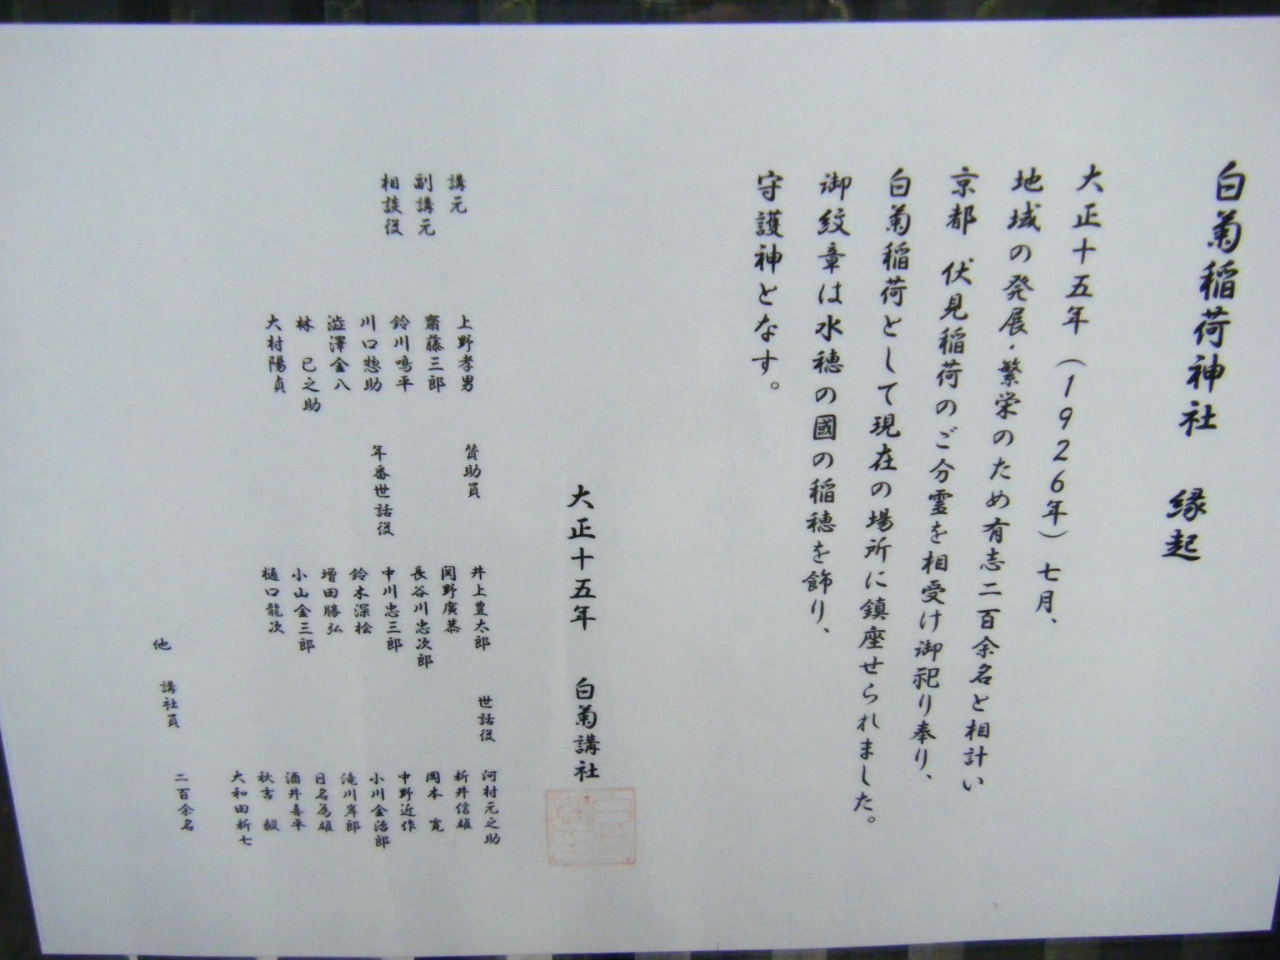 白菊稲荷神社　縁起
大正十五年（１９２６年）七月、
地域の発展・繁栄のため有志二百余名と相計い
京都　伏見稲荷のご分霊を相受け御祀り奉り、
白菊稲荷として現在の場所に鎮座せられました。
御紋章は水穂の國の稲穂を飾り、
守護神となす。
大正十五年　白菊講社
講元　上野孝男
副講元　齋藤三郎
相談役　鈴川鳴平
川口惣助
澁澤金八
林　巳之助
大村陽貞
賛助員　井上豊太郎
関野廣恭
長谷川忠次郎
年番世話役　中川忠三郎
鈴木深桧
増田勝弘
小山金三郎
樋口龍次
世話役　河村元之助
新井信雄
岡本　寛
中野近作
小川金治郎
滝川岸郎
日名為雄
酒井喜平
秋吉　毅
大和田新七
他　講社員　二百余名